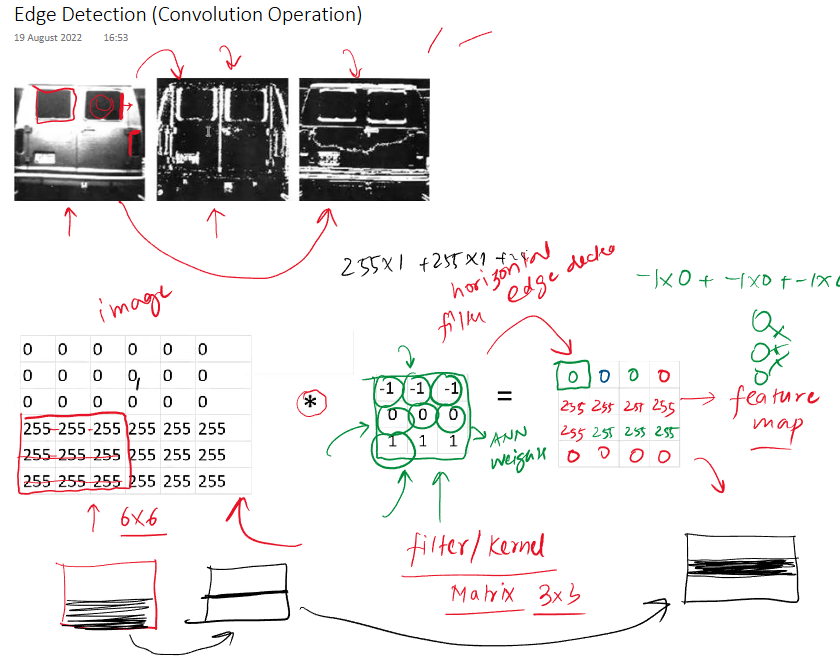 Edge Detection (Convolution Operation)
19 August 2022 16:53
255x1 + 255x1 +
horizontal
edge
-1x0 + -1x0 + -1x0
image
0 0 0 0 0 0
0 0 0 0, 0 0
0 0 0 0 0 0
255 255 255 255 255 255
255 255 255 255 255 255
255 255 255 255 255 255
*
-1 -1 -1
0 0 0
1 1 1
=
0 0 0 0
255 255 255 255
255 255 255 255
0 0 0 0
feature
map
ANN
weights
6x6
filter/kernel
Matrix 3x3